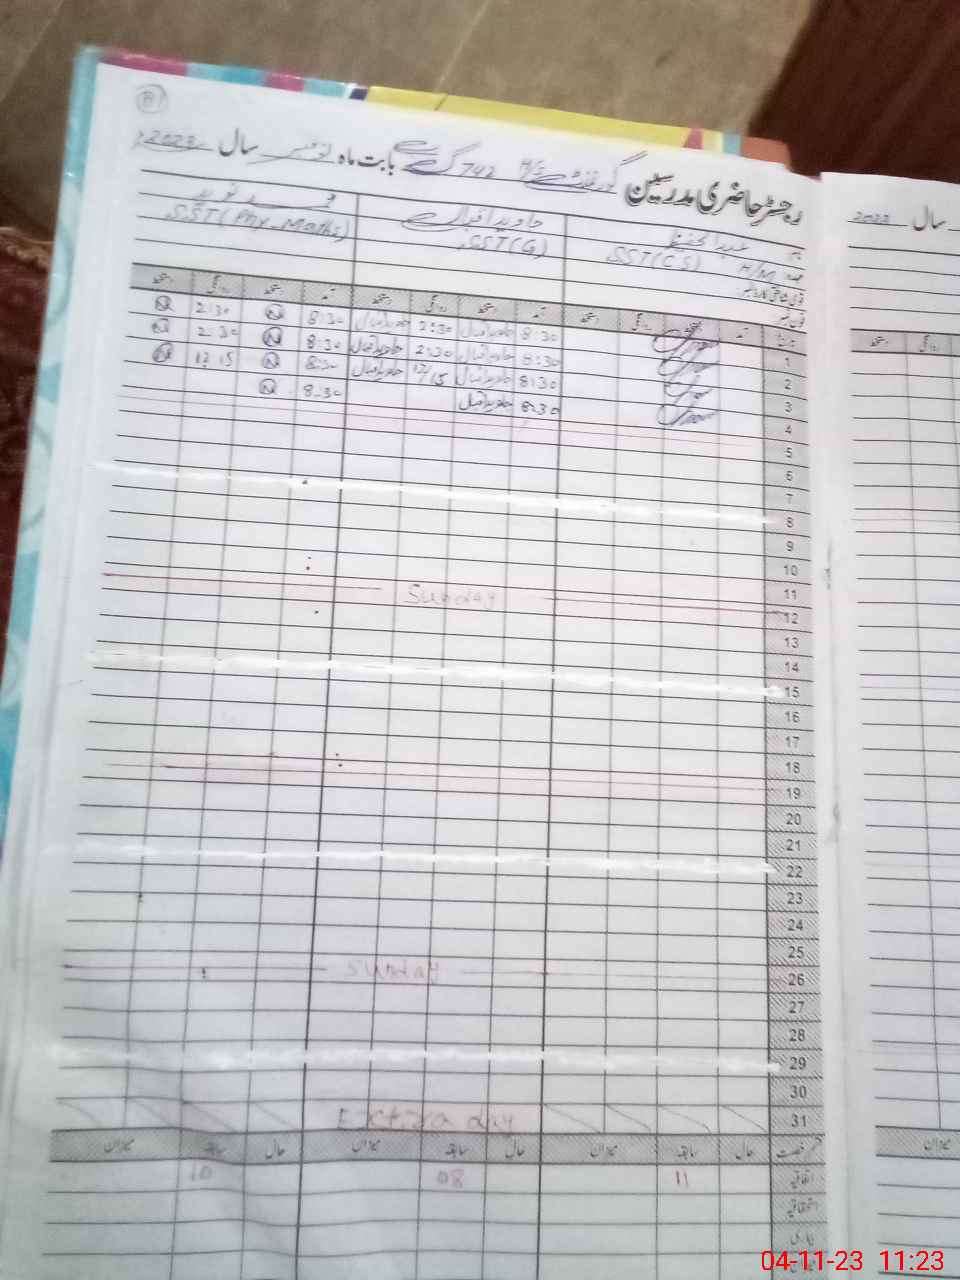 رجسٹر حاضری مدرسین گورنمنٹ H/S 742 گ ب بابت ماہ نومبر سال 2023ء
سال 2023
نام عبدالحفیظ جاوید اقبال محمد نوید
عہدہ H/M SST(CS) SST(G) SST(Phy-Maths)
قومی شناختی کارڈ نمبر
فون نمبر
تاریخ آمد دستخط روانگی دستخط آمد دستخط روانگی دستخط آمد دستخط روانگی دستخط
روانگی دستخط
1 8:30 جاوید اقبال 2:30 جاوید اقبال 8:30 N 2:30 N
2 8:30 جاوید اقبال 2:30 جاوید اقبال 8:30 N 2:30 N
3 8:30 جاوید اقبال 12/15 جاوید اقبال 8:30 N 12:15 N
4 8:30 جاوید اقبال 8:30 N
5
6
7
8
9
10
11
12 Sunday
13
14
15
16
17
18
19
20
21
22
23
24
25
26 Sunday
27
28
29
30
31 Extra day
قسم رخصت حال سابقہ میزان حال سابقہ میزان حال سابقہ میزان
میزان
اتفاقیہ 11 08 10
استحقاقیہ
بیماری
04-11-23 11:23